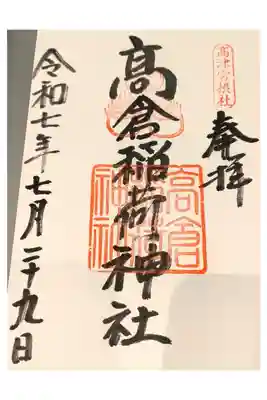 高津宮摂社
奉拝
髙倉稲荷神社
高倉稲荷神社
令和七年七月二十九日